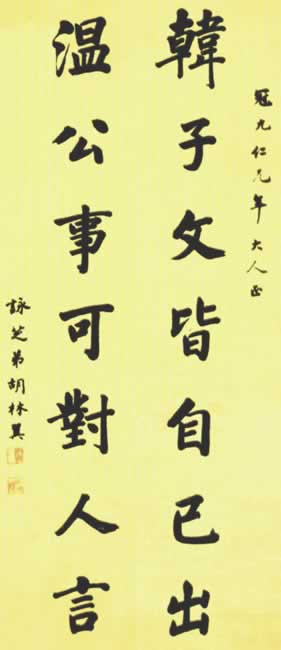 冠九仁兄年大人正
韓子文皆自己出
溫公事可對人言
詠芝弟胡林翼